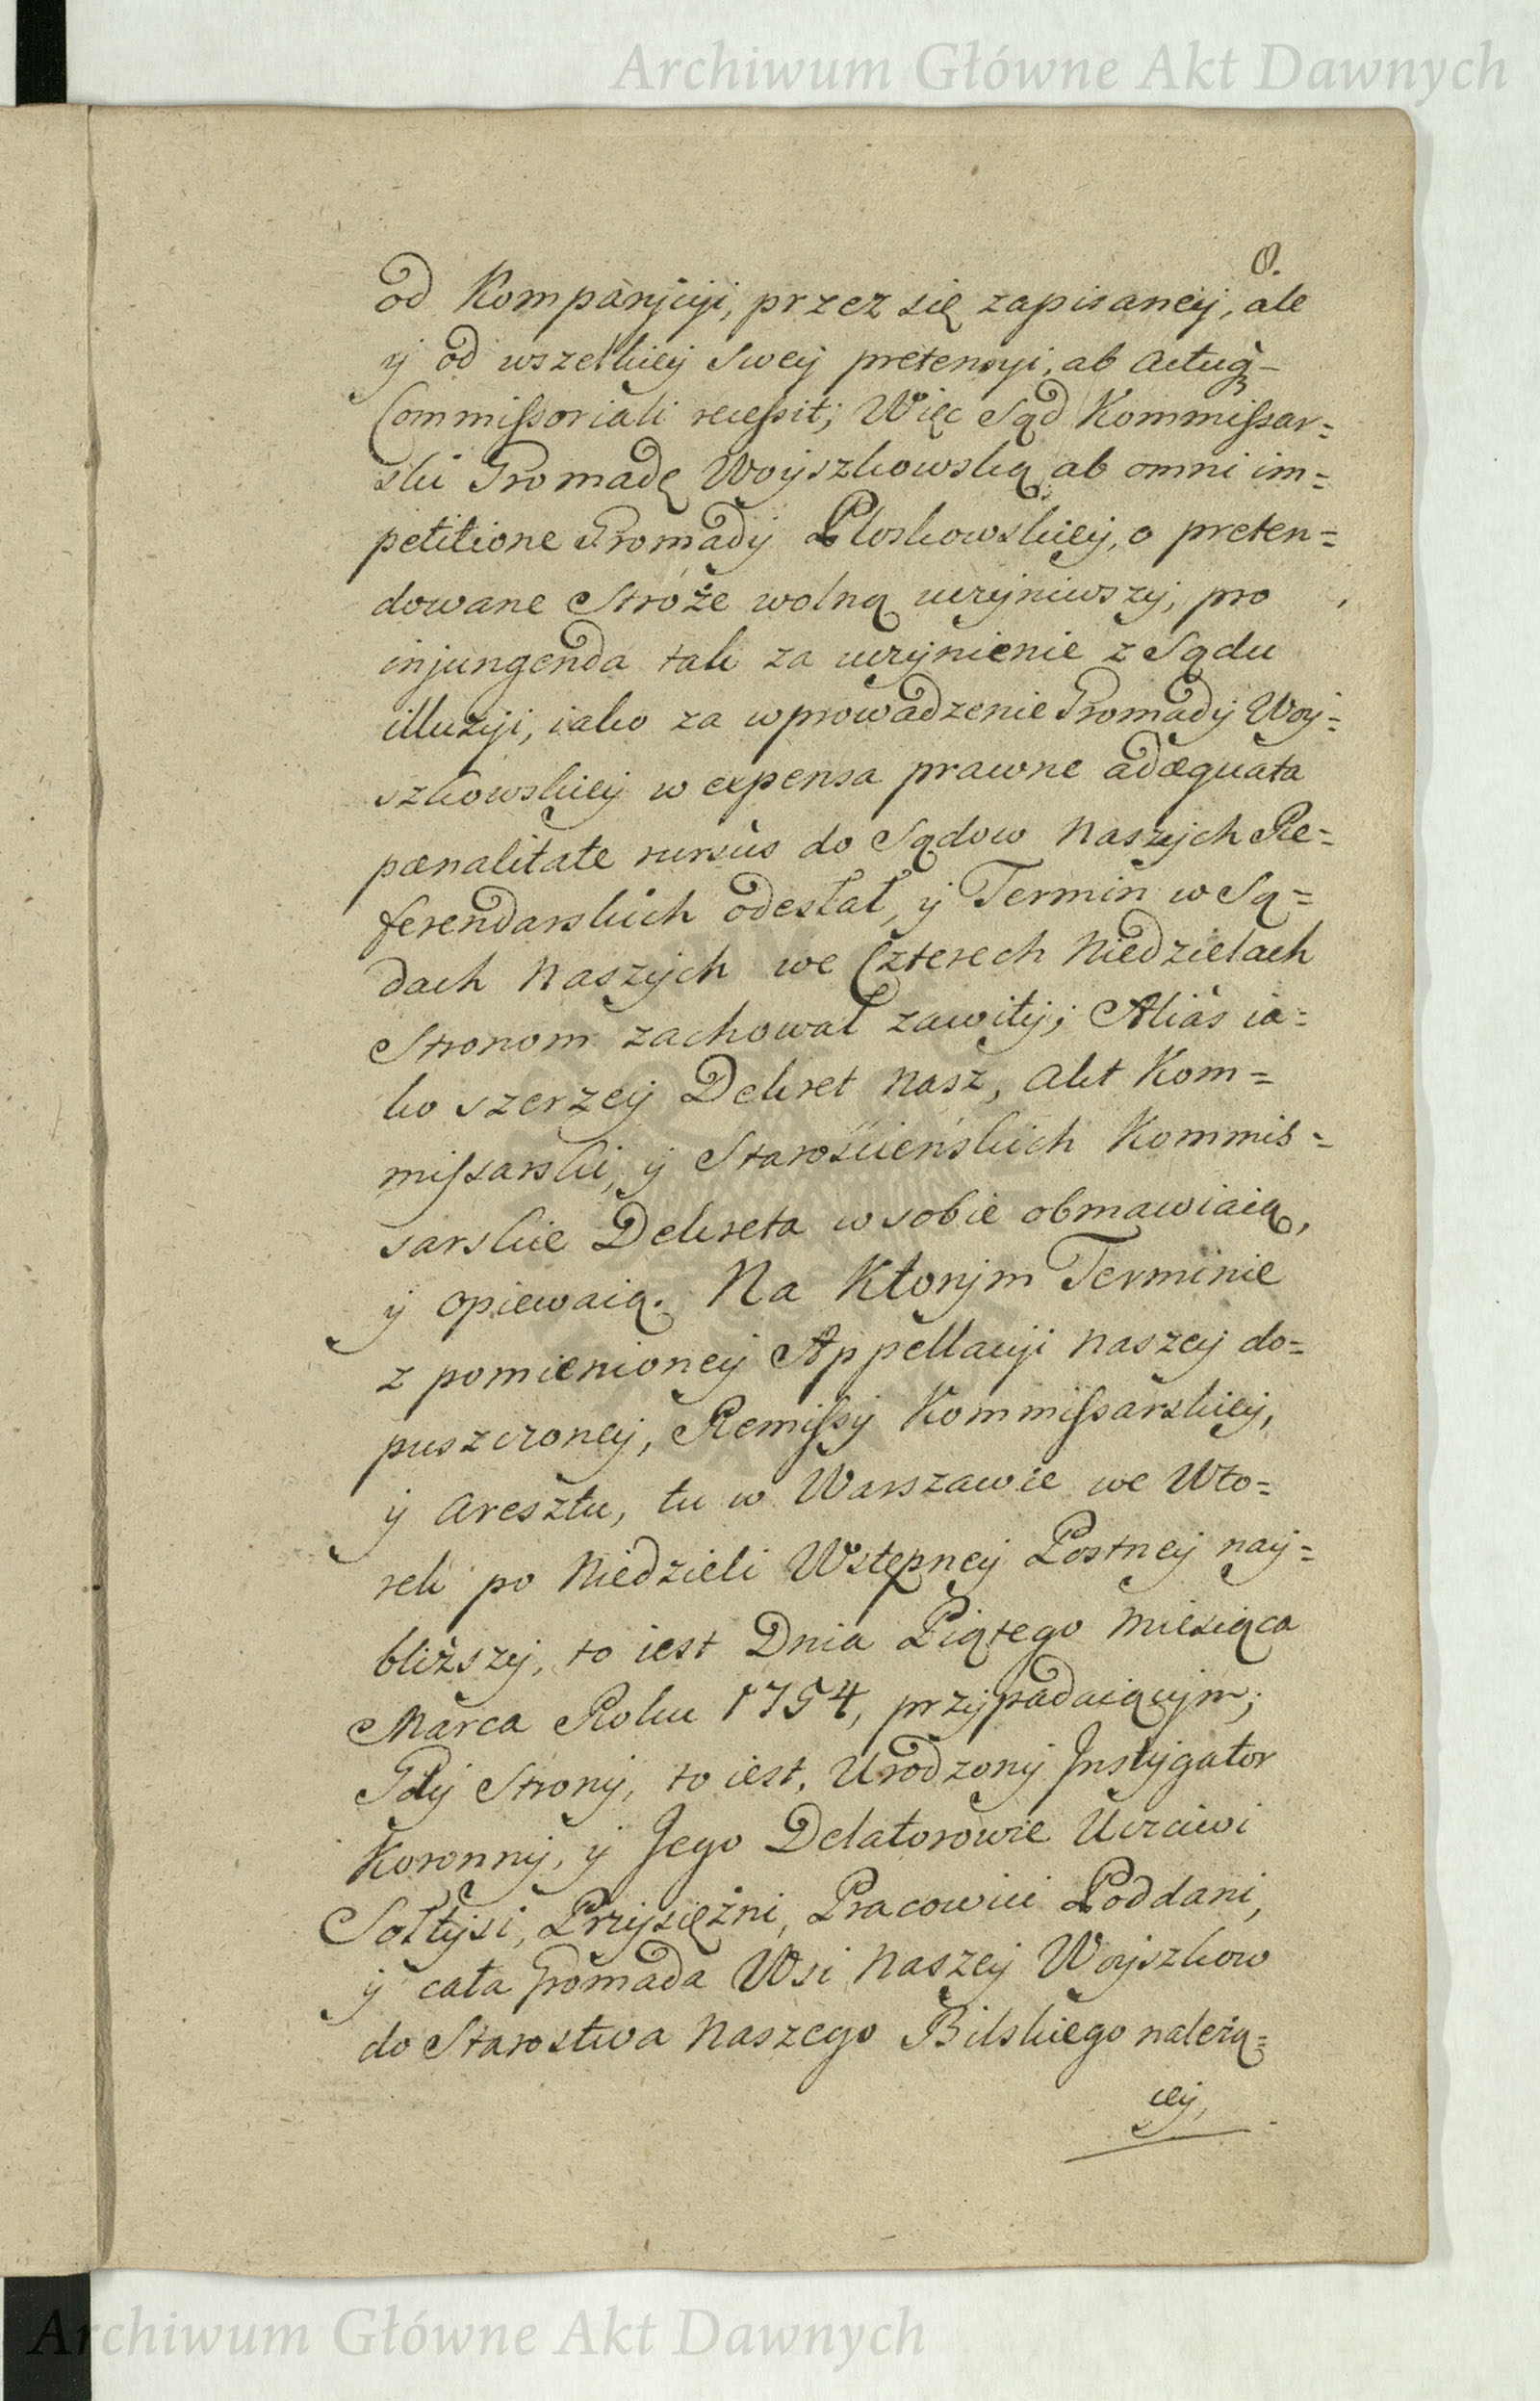 Archiwum Główne Akt Dawnych
O.
od Kompanjcyi, przez się zapisaney, ale
y od wszelkiey swey pretensyi, ab actuq̃
Commissoriali recessit; Więc Sąd Kommissar=
ski Gromadę Woyszkowską ab omni im=
petitione Gromady Ploskowskiey, o preten=
dowane Stróże wolną uczyniwszy, pro
injungenda tak za uczynienie z Sądu
illuzyi, iako za wprowadzenie Gromady Woy=
szkowskiey w expensa prawne adæquata
pænalitate rursùs do Sądow Naszych Re=
ferendarskich odesłał, y Termin w Są=
dach Naszych we Czterech Niedzielach
Stronom zachował zawity; Aliàs ia=
ko szerzey Dekret Nasz, Akt Kom=
missarski, y Starościeńskich Kommis=
sarskie Dekreta w sobie obmawiaią,
y opiewaią. Na Ktorym Terminie
z pomienioney Appellacyi Naszey do=
puszczoney, Remissy Kommissarskiey,
y Aresztu, tu w Warszawie we Wto=
rek po Niedzieli Wstępney Postney nay=
bliższy, to iest Dnia Piątego Miesiąca
Marca Roku 1754, przypadaiącym;
Gdy Strony, to iest, Urodzony Instygator
Koronny, y Jego Delatorowie Uczciwi
Sołtysi, Przysiężni, Pracowici Poddani,
y cała Gromada Wsi Naszey Woyszkow
do Starostwa Naszego Bilskiego należą=
cey,
Archiwum Główne Akt Dawnych